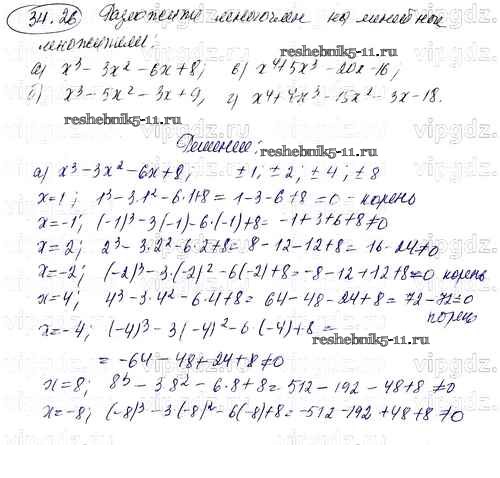 34.26 Разложите многочлен на линейные
множители:
reshebnik5-11.ru
а) x³ - 3x² - 6x + 8; в) x⁴ + 5x³ - 20x - 16;
б) x³ - 5x² - 3x + 9, г) x⁴ + 4x³ - 15x² - 3x - 18.
reshebnik5-11.ru
Решение:
reshebnik5-11.ru
а) x³ - 3x² - 6x + 8; ±1; ±2; ±4; ±8
x=1; 1³ - 3·1² - 6·1+8 = 1 - 3 - 6 + 8 = 0 - корень
x=-1; (-1)³ - 3(-1) - 6·(-1) + 8 = -1+3+6+8≠0
x=2; 2³ - 3·2² - 6·2+8 = 8 - 12 - 12 + 8 = 16 - 24≠0
x=-2; (-2)³ - 3·(-2)² - 6(-2)+8 = -8 - 12 + 12 + 8 = 0 корень
x=4; 4³ - 3·4² - 6·4+8 = 64 - 48 - 24 + 8 = 72 - 72=0
корень
x=-4; (-4)³ - 3(-4)² - 6·(-4) + 8 =
reshebnik5-11.ru
= -64 - 48 + 24 + 8 ≠0
x=8; 8³ - 3·8² - 6·8 + 8 = 512 - 192 - 48 + 8 ≠0
x=-8; (-8)³ - 3(-8)² - 6(-8)+8 = -512 - 192 + 48 + 8 ≠0
reshebnik5-11.ru